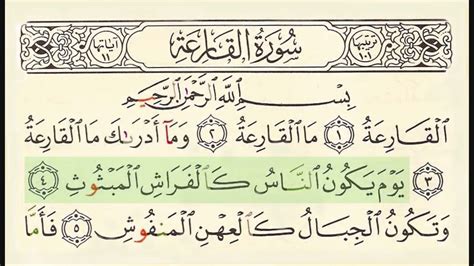 ترتيبها ١٠١ سُورَةُ القَارِعَةِ آياتها ١١
بِسْمِ ٱللَّهِ ٱلرَّحْمَٰنِ ٱلرَّحِيمِ
ٱلْقَارِعَةُ ١ مَا ٱلْقَارِعَةُ ٢ وَمَآ أَدْرَىٰكَ مَا ٱلْقَارِعَةُ
٣ يَوْمَ يَكُونُ ٱلنَّاسُ كَٱلْفَرَاشِ ٱلْمَبْثُوثِ ٤
وَتَكُونُ ٱلْجِبَالُ كَٱلْعِهْنِ ٱلْمَنفُوشِ ٥ فَأَمَّا